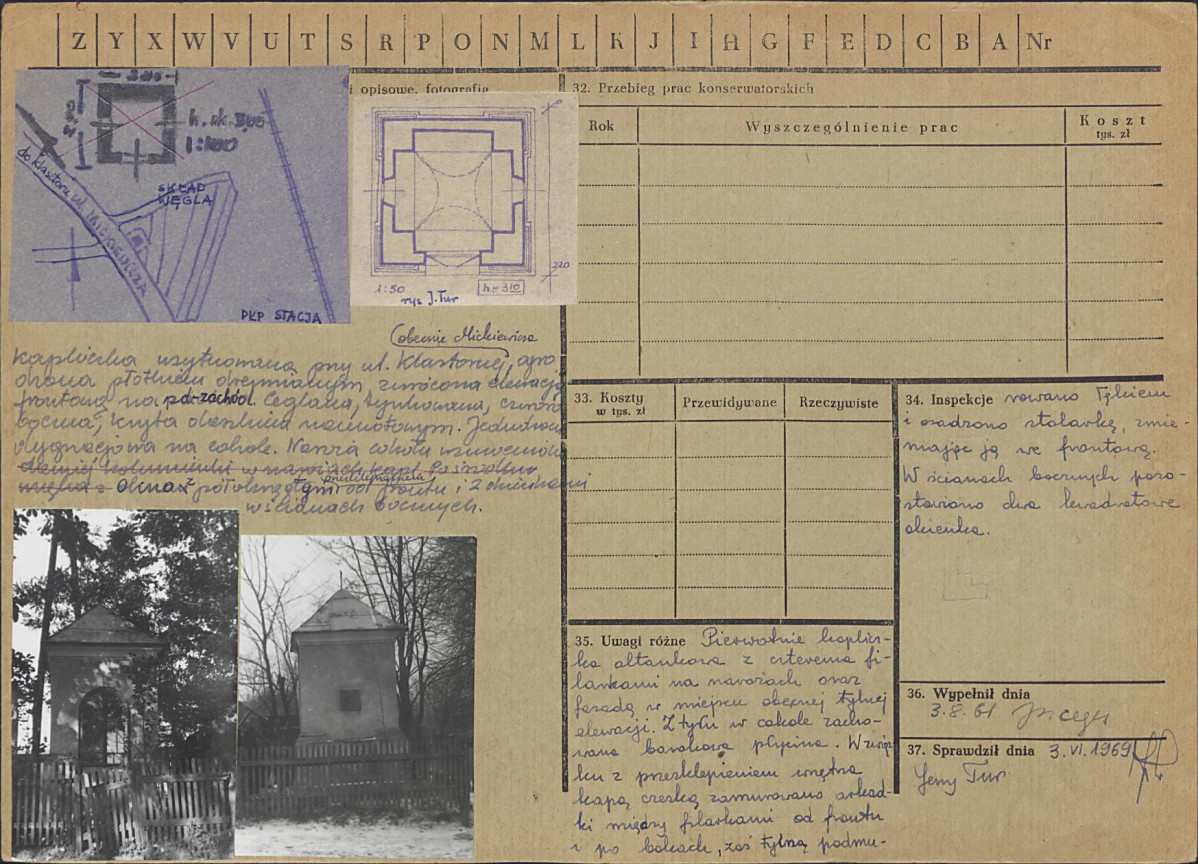 Z Y X W V U T S R P O N M L K J I H G F E D C B A Nr
i opisowe, fotografia
1:100
do klasztoru ul. Mickiewicza
SKŁAD
WĘGLA
PKP STACJA
220
1:50
h=310
rys J. Tur
(obecnie Mickiewicza
Kapliczka usytuowana przy ul. Klasztornej, ogro
dzona płotkiem drewnianym, zwrócona elewacją
frontową na pd-zachód. Ceglana, tynkowana, czworo
boczna, kryta daszkiem namiotowym. Jednokon
dygnacjowa na cokole. Naroża cokołu
półokrągłym od frontu i 2
w ścianach bocznych.
32. Przebieg prac konserwatorskich
Rok
Wyszczególnienie prac
Koszt
tys. zł
33. Koszty
w tys. zł
Przewidywane
Rzeczywiste
34. Inspekcje rowano tyłkiem
i osadzono stolarkę, zmie-
niając ją we frontową.
W ścianach bocznych pozo-
stawiono dwa kwadratowe
okienka.
35. Uwagi różne Pierwotnie kaplicz-
ka altankowa z czterema fi-
larkami na narożach oraz
fasadą w miejscu obecnej tylnej
elewacji. Z tyłu w cokole zacho-
wana barokowa płycina. W zwią-
zku z przesklepieniem wnętrza
kapą czeską zamurowano arkad-
ki między filarkami od frontu
i po bokach, zaś tylną podmu-
36. Wypełnił dnia
3.8.61
37. Sprawdził dnia 3.VI.1969
Jerzy Tur